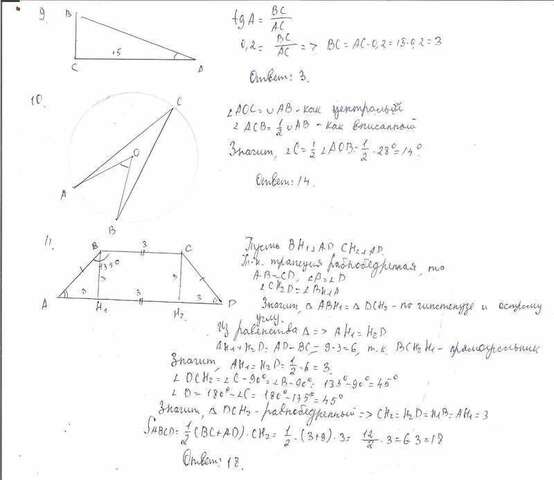 9.
B
C
15
A
tg A = BC/AC
0,2 = BC/AC => BC = AC·0,2 = 15·0,2 = 3
Ответ: 3.
10.
C
O
A
B
∠AOC = ∪AB - как центральный
∠ACB = 1/2 ∪AB - как вписанный
Значит, ∠C = 1/2 ∠AOB = 1/2 · 28° = 14°
Ответ: 14.
11.
B 3 C
135°
A 3 H₁ 3 H₂ 3 D
Пусть BH₁⊥AD CH₂⊥AD
Т.к. трапеция равнобедренная, то
AB=CD, ∠A=∠D
∠CH₂D=∠BH₁A
Значит, △ABH₁=△DCH₂ - по гипотенузе и острому
углу.
Из равенства △ => AH₁=H₂D
AH₁+H₂D=AD-BC=9-3=6, т.к. BCH₂H₁ - прямоугольник
Значит, AH₁=H₂D=1/2·6=3.
∠DCH₂=∠C-90°=∠B-90°=135°-90°=45°
∠D=180°-∠C=180°-135°=45°
Значит, △DCH₂ - равнобедренный => CH₂=H₂D=H₁B=AH₁=3
S ABCD = 1/2 (BC+AD)·CH₂ = 1/2·(3+9)·3 = 12/2·3=6·3=18
Ответ: 18.